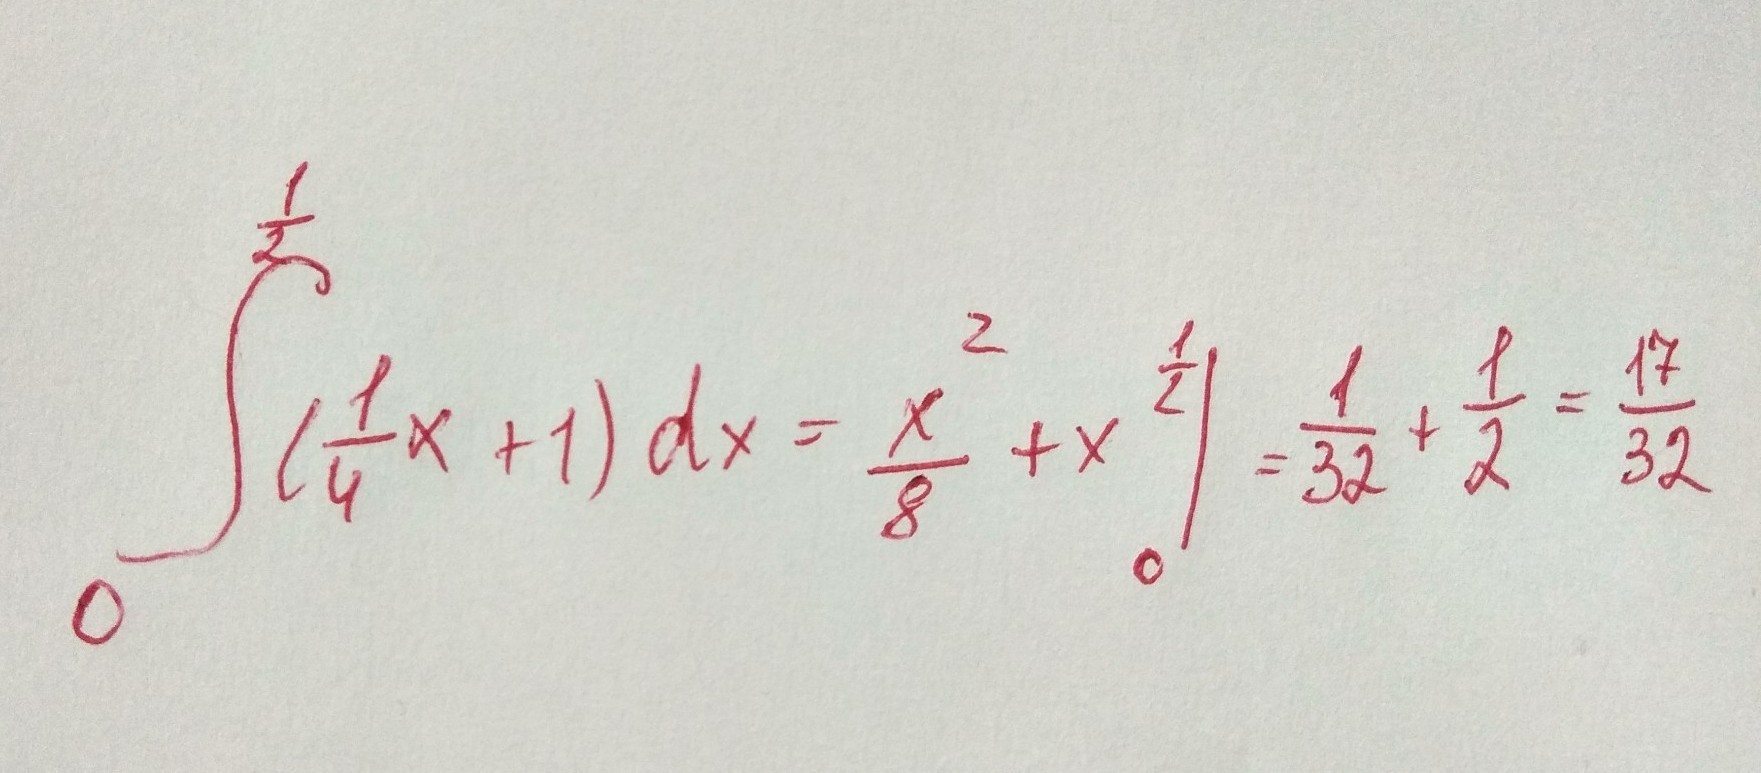 ∫₀^{1/2} (1/4 x + 1) dx = x²/8 + x |₀^{1/2} = 1/32 + 1/2 = 17/32